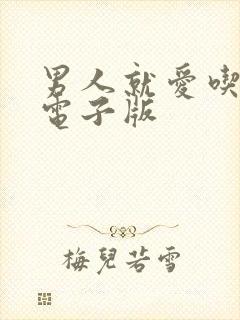 男人就愛喫
電子版
梅兒若雪